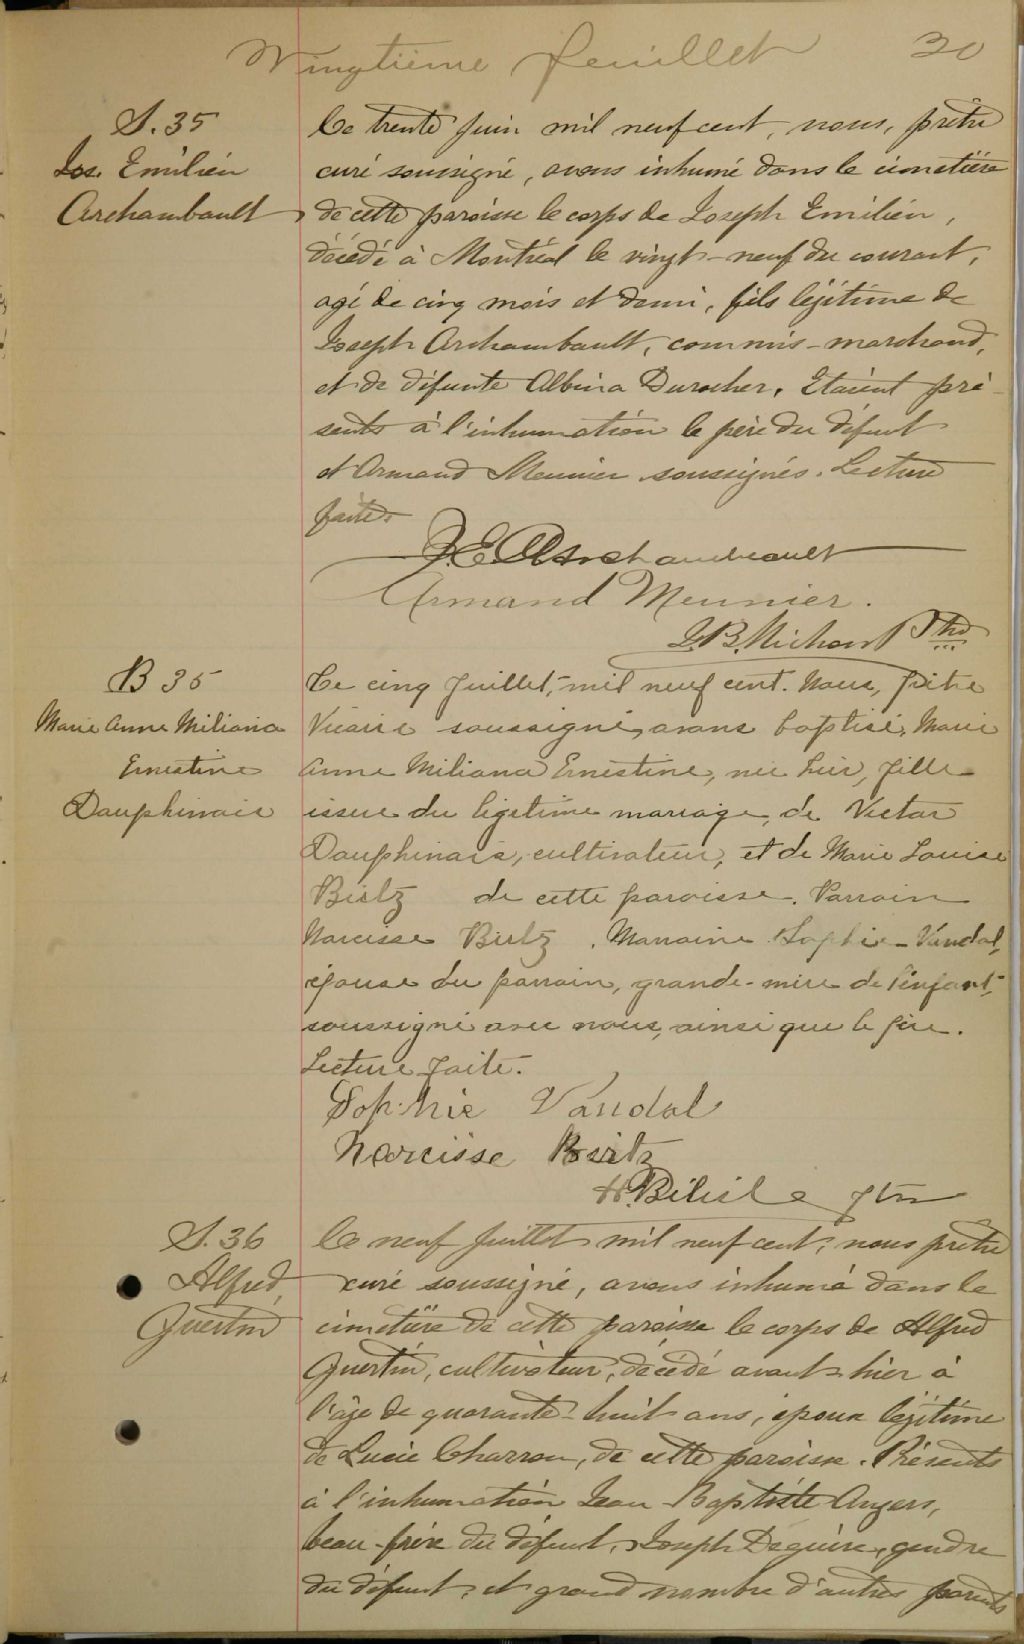 Vingtième feuillet 20
S. 35
Jos. Emilien
Archambault
Le trente Juin mil neuf cent, nous, prêtre
curé soussigné, avons inhumé dans le cimetière
de cette paroisse le corps de Joseph Emilien,
décédé à Montréal le vingt-neuf du courant,
agé de cinq mois et demi, fils légitime de
Joseph Archambault, commis-marchand,
et de défunte Albina Durocher. Etaient pré-
sents à l'inhumation le père du défunt
et Armand Meunier soussignés. Lecture
faite.
J. E. Archambeault
Armand Meunier.
J. B. Michon Ptre
B 35
Marie Anne Miliana
Ernestine
Dauphinais
Le cinq Juillet, mil neuf cent. Nous, prêtre
Vicaire soussigné, avons baptisé, Marie
Anne Miliana Ernestine, née hier, fille
issue du légitime mariage, de Victor
Dauphinais, cultivateur, et de Marie Louise
Beitz de cette paroisse. Parrain
Narcisse Beitz. Marraine Sophie Vandal,
épouse du parrain, grande-mère de l'enfant,
soussigné avec nous, ainsi que le père.
Lecture faite.
Sophie Vandal
Narcisse Beritz
H. Bélisle ptre
S. 36
Alfred,
Guertin
Le neuf Juillet mil neuf cent, nous prêtre
curé soussigné, avons inhumé dans le
cimetière de cette paroisse le corps de Alfred
Guertin, cultivateur, décédé avant-hier à
l'âge de quarante-huit ans, époux légitime
de Lucie Charron, de cette paroisse. Présents
à l'inhumation Jean-Baptiste Angers,
beau-frère du défunt, Joseph Deguire, gendre
du défunt, et grand nombre d'autres parents